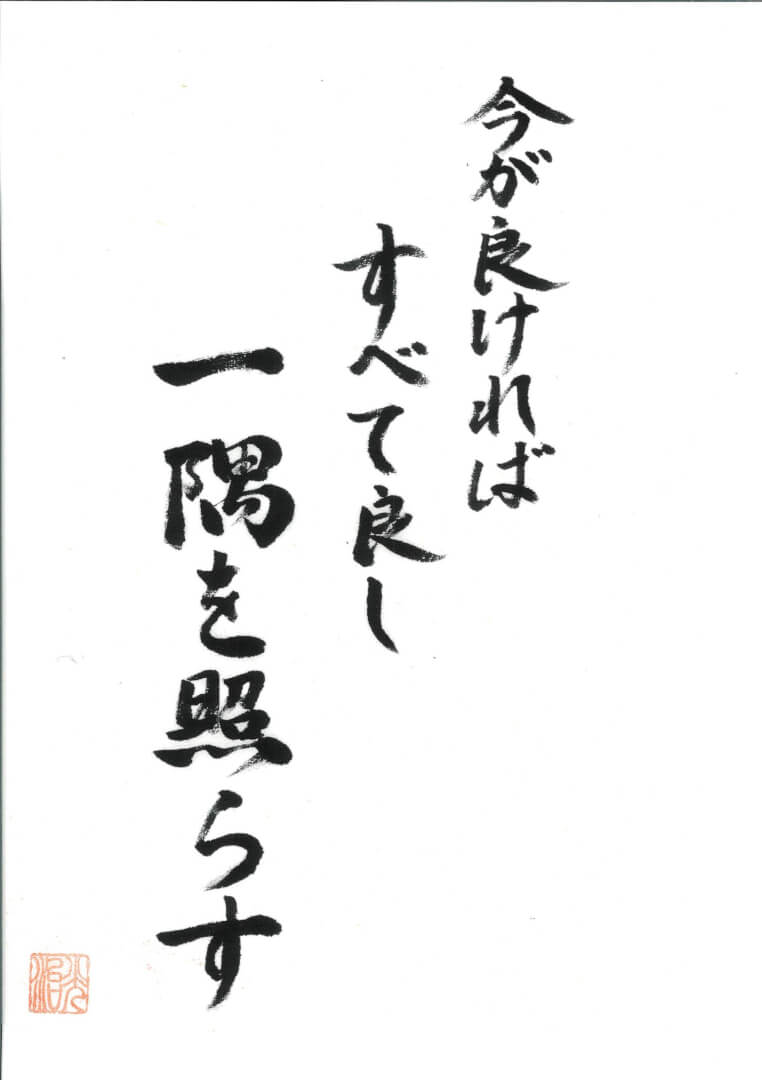 今が良ければ
すべて良し
一隅を照らす